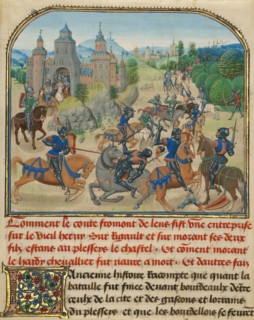 Comment le conte fromont de lens fist vne entreprise
sur le vieil heruy sur et sur morant ses deux
filz estans au plesseys le chastel Et coment morant
le hardy chevallier fut naure a mort Et dautres fais
Ancienne histoire racompte que quant la
bataille fut finee deuant bourdeaulx dentre
ceulx de la cite et des gascons et lorrains
du plesseys et que les bourdellois se furent